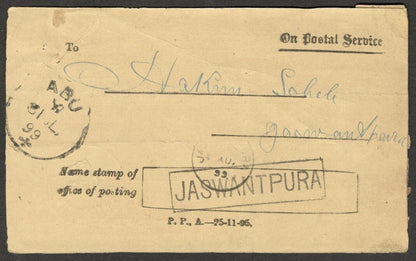 On Postal Service
To
Hakim Saheb
Jaswantpura
ABU
99
Name stamp of
office of posting
JASWANTPURA
99
P. P., A.—25-11-95.